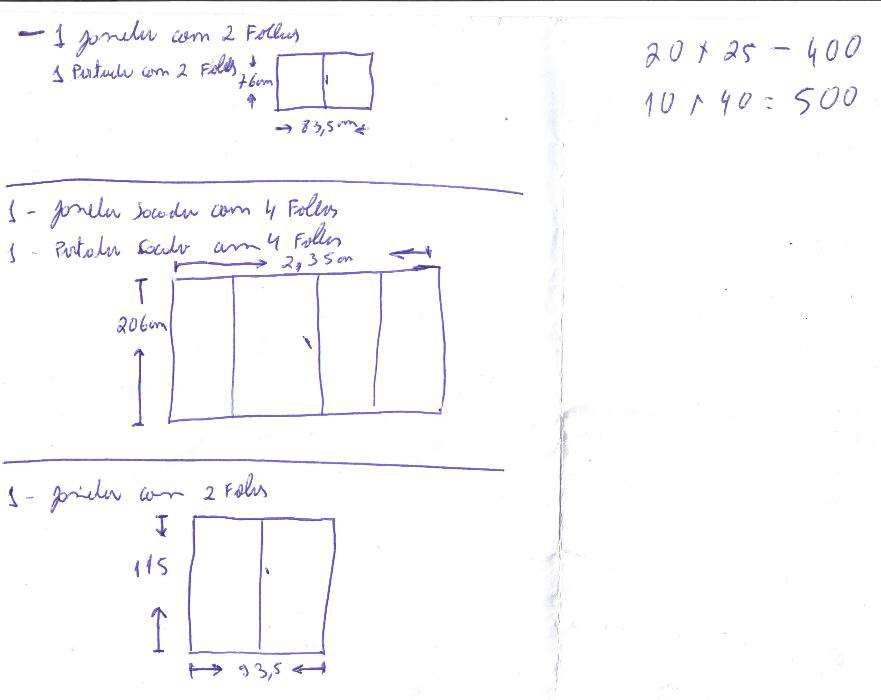 - 1 janela com 2 Folhas
1 Portada com 2 Folhas
76cm
83,5cm
1 - janela Sacada com 4 Folhas
1 - Portada Sacada com 4 Folhas
2,35cm
206cm
1 - janela com 2 Folhas
115
93,5
20 x 25 - 400
10 x 40 = 500